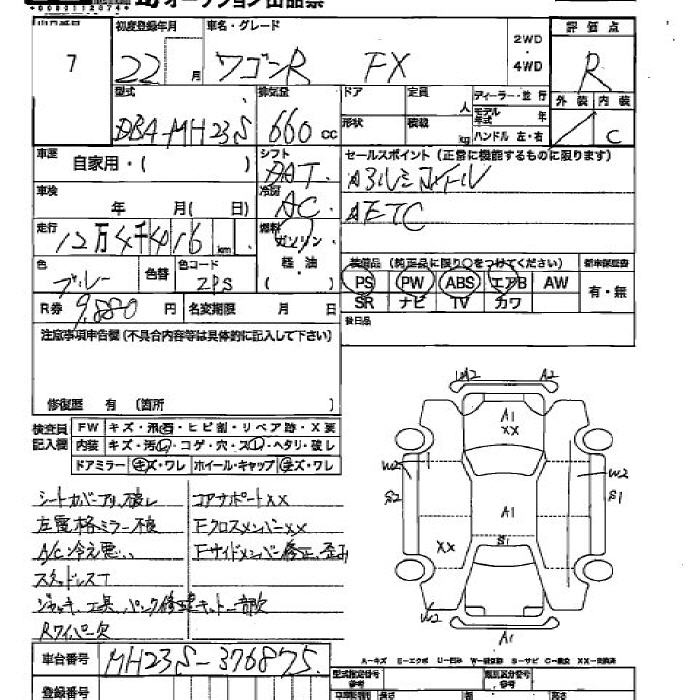 オークション出品票
7
初度登録年月
22 月
車名・グレード
ワゴンR FX
2WD
・
4WD
評価点
R
型式
DBA-MH23S
排気量
660 cc
ドア
定員 人
形状
積載 kg
ディーラー・並行
モデル年式 年
ハンドル 左・右
外装 内装
C
車歴
自家用・( )
シフト
DAT
セールスポイント(正常に機能するものに限ります)
アルミホイール
ETC
車検
年 月( 日)
冷房
AC
走行
12万4千416 km
燃料
ガソリン
軽・油
( )
色
ブルー
色替
色コード
ZPS
装備品(純正品に限り○をつけてください)
PS PW ABS エアB AW
SR ナビ TV カワ
有・無
R券 9,880 円
名変期限 月 日
後日品
注意事項申告欄(不具合内容等は具体的に記入して下さい)
修復歴 有 (箇所 )
検査員
記入欄
FW キズ・飛石・ヒビ割・リペア跡・X要
内装 キズ・汚レ・コゲ・穴・スレ・ヘタリ・破レ
ドアミラー キズ・ワレ ホイール・キャップ キズ・ワレ
シートカバー
左電格ミラー不良
A/C冷え悪い
スタッドレスT
ジャッキ、工具、パンク修理キット一部欠
Rワイパー欠
コアサポートXX
FクロスメンバーXX
Fサイドメンバー修正、歪み
A2 A2
A1
XX
W2 W2
S2 S1
A1
XX S1
W2
A1
車台番号 MH23S-376875
A-キズ E-エクボ U-凹み W-補修跡 S-サビ C-腐食 XX-交換済
登録番号
型式指定番号
参考
類別区分番号
参考